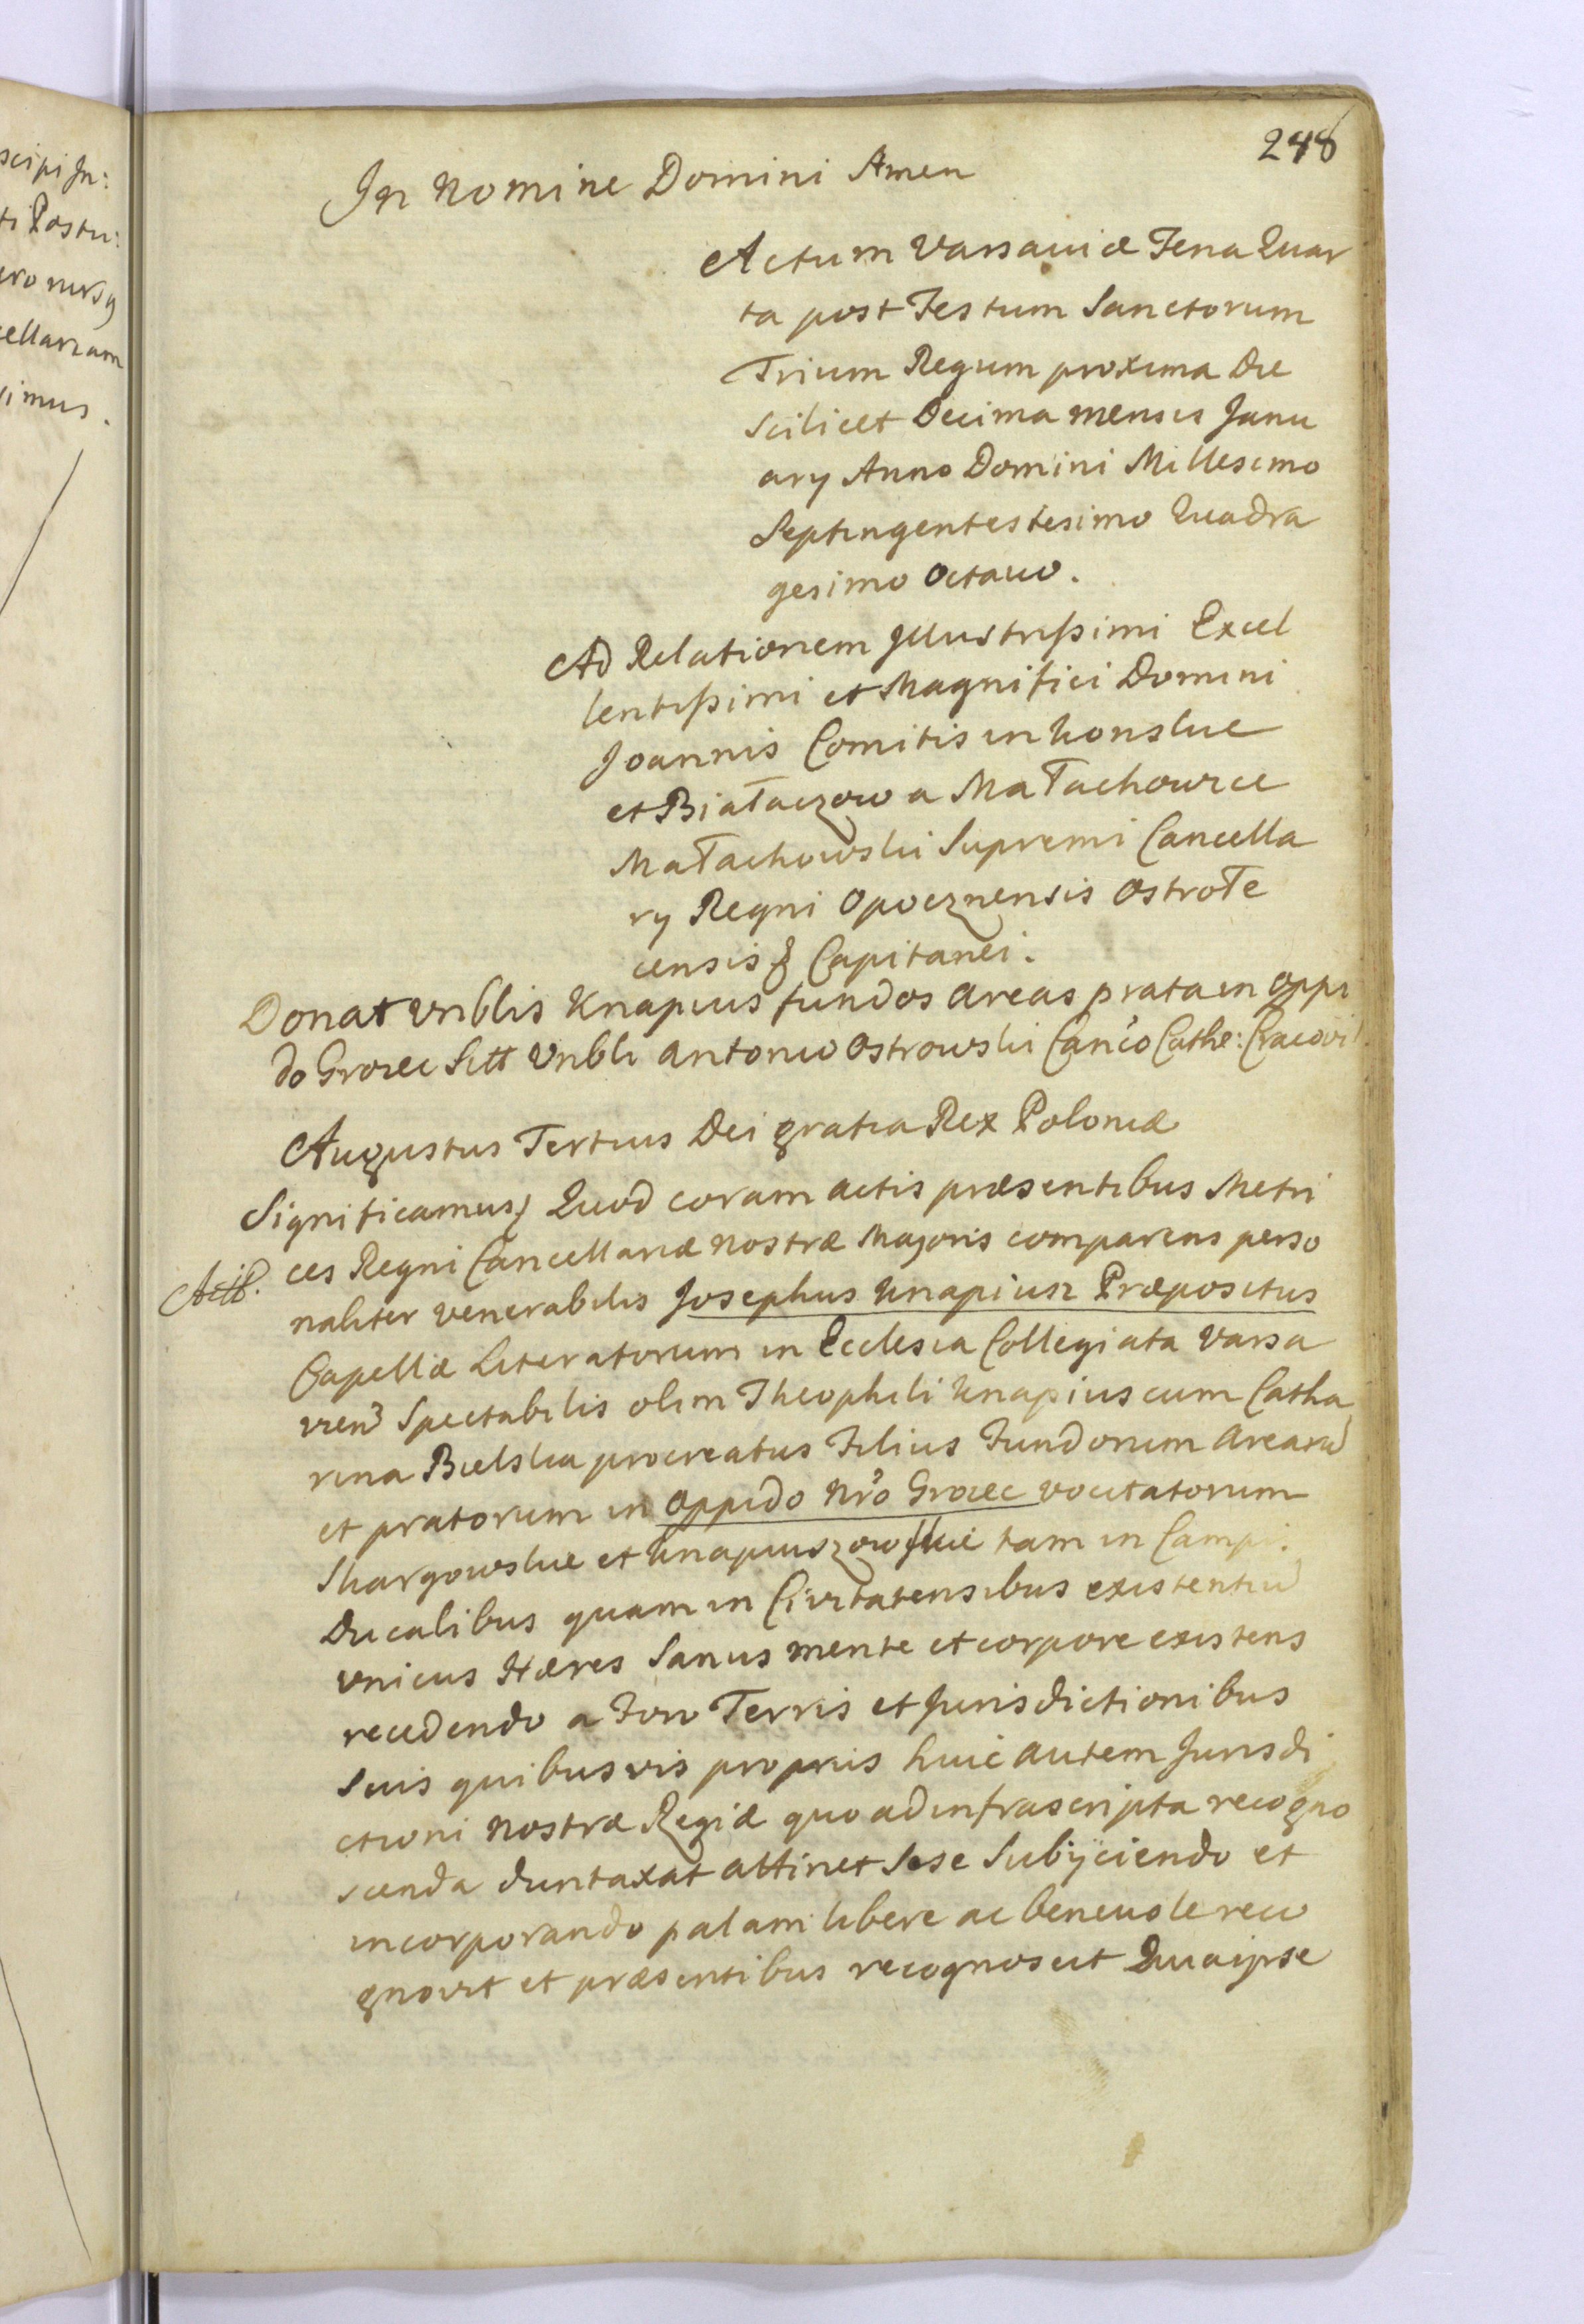 scipi In:
ti Postu:
ero rursq
cellariam
simus.
248
In Nomine Domini Amen
Actum Varsaviæ Feria Quar
ta post Festum Sanctorum
Trium Regum proxima Die
scilicet Decima mensis Janu
ary Anno Domini Millesimo
Septingentestesimo Quadra
gesimo Octavo.
Ad Relationem Illustrißimi Excel
lentißimi et Magnifici Domini
Joannis Comitis in Konskie
et Białaczow a Małachowice
Małachowski Supremi Cancella
ry Regni Opocznensis Ostrołe
censis & Capitanei.
Donat Vnblis Knapius fundos areas prata in oppi
do Groiec Sitt Vnbli Antonio Ostrowski Canco Cathe: Cracovi
Augustus Tertius Dei gratia Rex Poloniæ
Significamus, Quod coram actis præsentibus Metri
ces Regni Cancellariæ nostræ Majoris comparens perso
naliter venerabilis Josephus Knapiusz Præpositus
Capellæ Literatorum in Ecclesia Collegiata Varsa
vien Spectabilis olim Theophili Knapius cum Catha
rina Bielska procreatus Filius Fundorum Arearu
et pratorum in oppido Nro Groiec vocitatorum
Skargowskie et Knapiuszowskie tam in Campi:
Ducalibus quam in Civitatensibus existentiu
vnicus Hæres Sanus mente et corpore existens
recedendo a Foro Terris et Jurisdictionibus
suis quibusvis proprijs huic autem Jurisdi
ctioni nostræ Regiæ quo ad infrascripta recogno
scenda duntaxat attinet Sese Subijciendo et
incorporando palam libere ac benevole reco
gnovit et præsentibus recognoscit Quia ipse